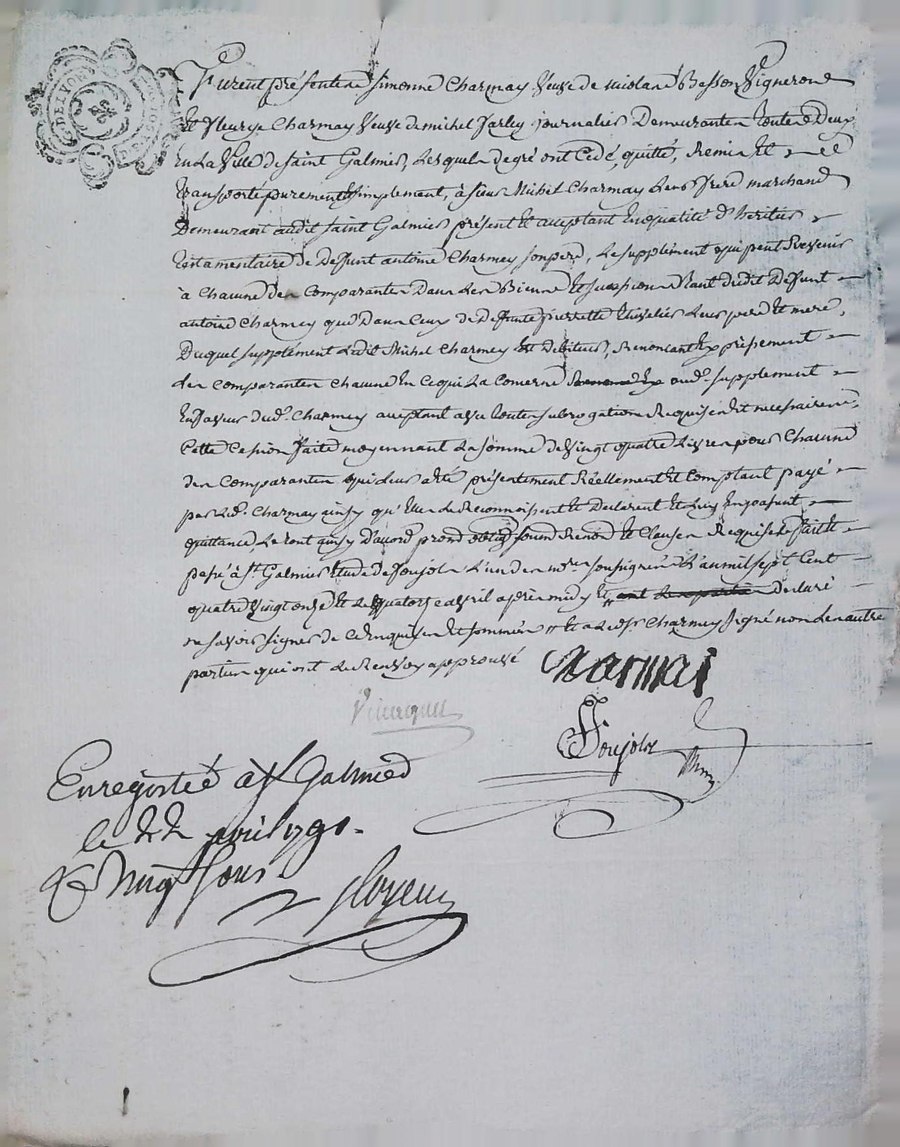 G. DE LYON
Furent présentes Simonne Charmay Veuve de Basson Vigneron
Et Fleurye Charmay Veuve de michel journalier Demeurantes toutes Deux
En La Ville de Saint Galmier, Lesquels de gré ont Cédé, quitté, Remis Et
transporté purement Et Simplement, à Sieur Michel Charmay Leur frere marchand
Demeurant audit Saint Galmier présent Et acceptant En qualité d'heritier
testamentaire de Deffunt antoine Charmey Son pere, Le supplément qui peut Revenir
à Chacune des Comparantes Dans Les Biens Et succession tant dudit Deffunt
antoine Charmey que Dans Ceux de Deffunte pierrette Leurs pere Et mere,
Duquel supplément Ledit Michel Charmey Est Debiteur, Renoncant Expressement
Les Comparantes Chacune En Ce qui La Concerne aud. supplement
En faveur dud. Charmey acceptant avec toutes subrogations Requises Et necessaires
Cette Cession faite moyennant La somme de Vingt quatre Livres pour Chacune
des Comparantes qui Leur a été présentement Réellement Et Comptant payé
par Led. Charmay ainsy qu'Elles Le Reconnoissent Et Declarent Et Luy En passent
quittance, Le tout ainsy D'accord Et Clauses Requises fait Et
passé à St. Galmier Etude de Soujol L'un des nores. soussignés L'an mil sept Cent
quatre Vingt onze Et Le quatorze avril après midy Et Declaré
ne savoir signer de Ce Enquises Et sommées Et a Led. Sr. Charmey signé non Les autres
parties qui ont Le Renvoy approuvé
Charmai
Soujol
Enregistré à St Galmier
le 22 avril 1791.
R Vingt sous